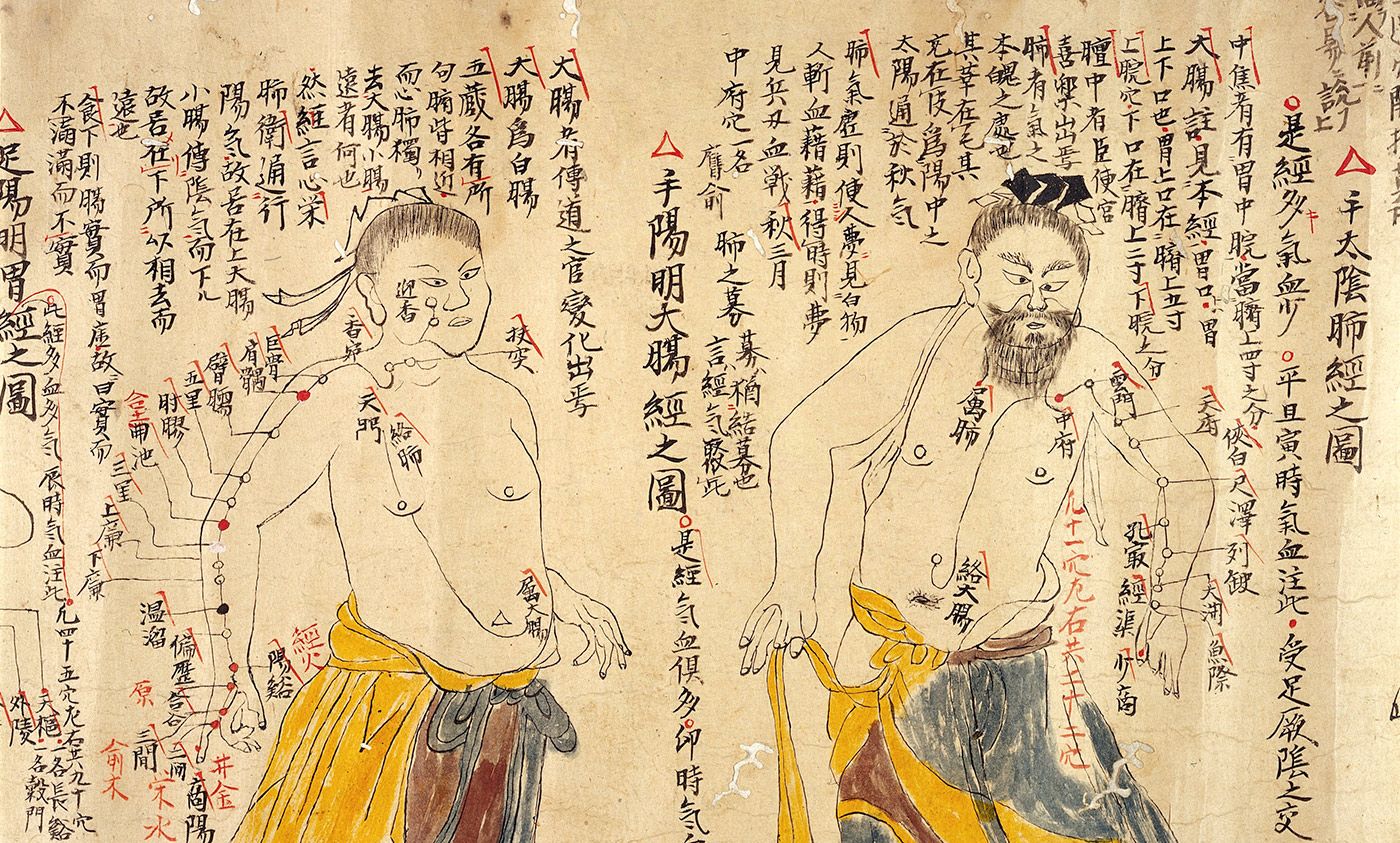 手太陰肺經之圖
是經多氣血少
平旦寅時氣血注此
受足厥陰之交
中焦者有胃中脘當臍上四寸之分
大腸註見本經胃口胃
上下口也胃上口在臍上五寸
上脘穴下口在臍上二寸下脘之分
膻中者臣使官
喜樂出焉
肺者氣之
本魄之處也
其華在毛其
充在皮為陽中之
太陽通於秋氣
肺氣虛則使人夢見白物
人斬血藉藉得時則夢
見兵刃血戰秋三月
中府穴一名
膺俞
肺之募
募猶結募也
言經氣聚此
雲門
中府
天府
俠白
尺澤
列缺
孔最
經渠
魚際
少商
屬肺
絡大腸
凡十一穴左右共二十二穴
手陽明大腸經之圖
是經氣血俱多
卯時氣
大腸者傳道之官變化出焉
大腸為白腸
五藏各有所
句腑皆相近
而心肺獨
去大腸小腸
遠者何也
然經言心榮
肺衛通行
陽氣故居在上大腸
小腸傳陰氣而下
故居在下所以相去而
遠也
食下則腸實而胃虛故曰實而
不滿滿而不實
迎香
扶突
天門
絡肺
屬大腸
巨骨
肩髃
臂臑
五里
肘髎
曲池
三里
上廉
下廉
温溜
偏歷
陽谿
經火
合谷
原
三間
俞木
二間
水
商陽
井金
足陽明胃經之圖
此經多血多氣
辰時氣血注此
凡四十五穴左右共九十穴
天樞一名長谿
一名穀門
外陵